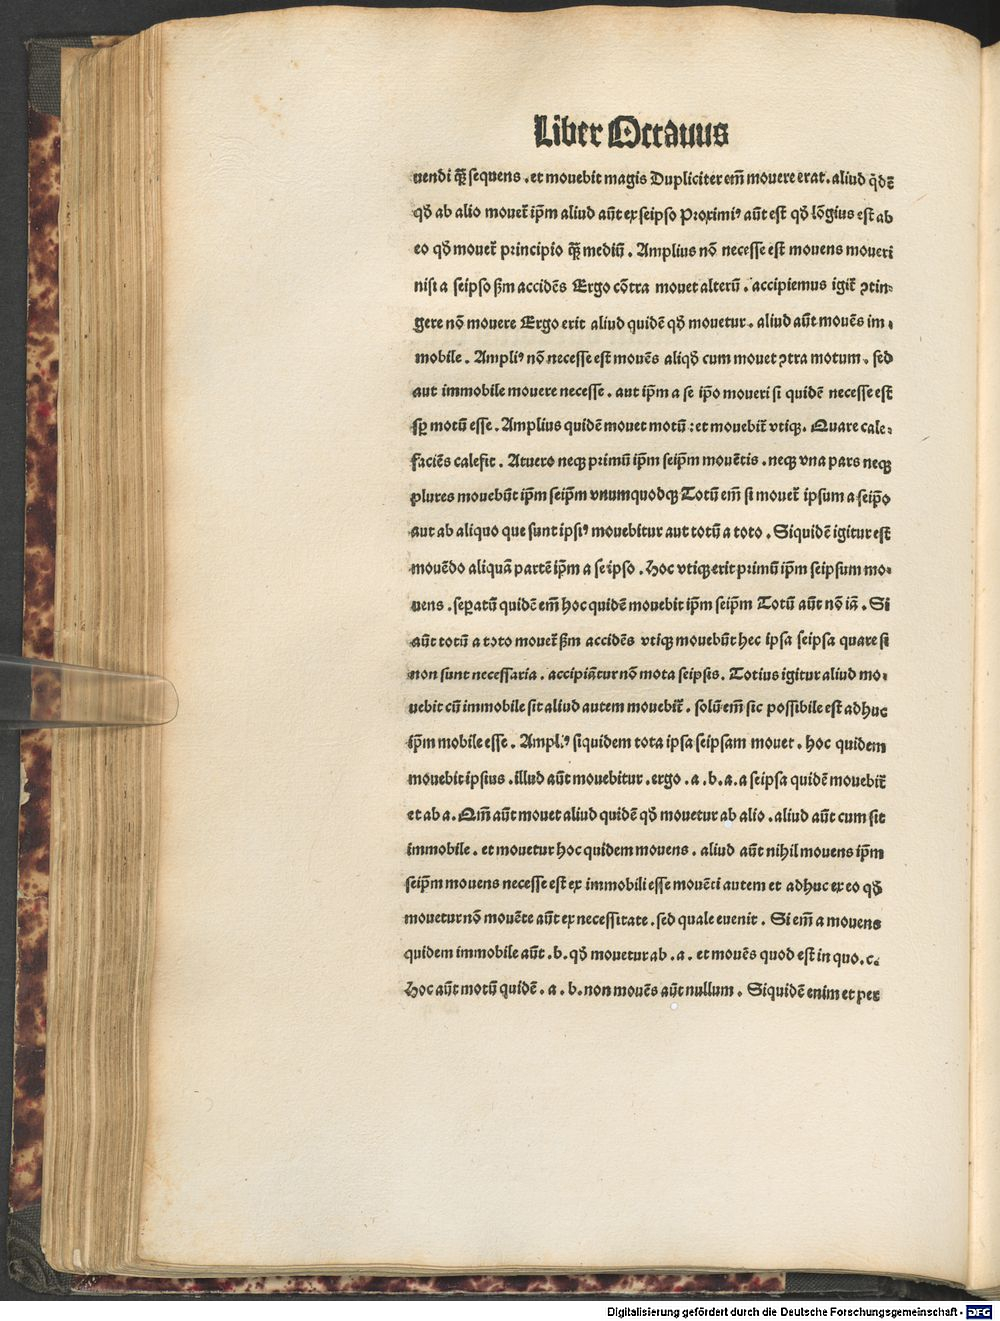 Liber Octauus
uendi q̃ȝ sequens . et mouebit magis Dupliciter em̄ mouere erat . aliud q̇dē
qd̕ ab alio mouet̃ ip̄m aliud aūt ex seipso Proximiꝰ aūt est qd̕ lōgius est ab
eo qd̕ mouet̃ principio q̃ȝ mediū . Amplius nō necesse est mouens moueri
nisi a seipso ẜm accidēs Ergo cōtra mouet alterū . accipiemus igit̃ ꝯtin⸗
gere nō mouere Ergo erit aliud quidē qd̕ mouetur . aliud aūt mouēs im⸗
mobile . Ampliꝰ nō necesse est mouēs aliqd̕ cum mouet ꝯtra motum . sed
aut immobile mouere necesse . aut ip̄m a se ip̄o moueri si quidē necesse est
sꝑ motū esse . Amplius quidē mouet motū : et mouebit̃ vtiqȝ . Quare cale⸗
faciēs calefit . Atuero neqȝ primū ip̄m seip̄m mouētis . neqȝ vna pars neqȝ
plures mouebūt ip̄m seip̄m vnumquodqȝ Totū em̄ si mouet̃ ipsum a seip̄o
aut ab aliquo que sunt ipsiꝰ mouebitur aut totū a toto . Siquidē igitur est
mouēdo aliquā partē ip̄m a se ipso . Hoc vtiqȝ erit primū ip̄m seipsum mo⸗
uens . seꝑatū quidē em̄ hoc quidē mouebit ip̄m seip̄m Totū aūt nō iā . Si
aūt totū a toto mouet̃ ẜm accidēs vtiqȝ mouebūt hec ipsa seipsa quare si
non sunt necessaria . accipiātur nō mota seipsis . Totius igitur aliud mo⸗
uebit cū immobile sit aliud autem mouebit̃ . solū em̄ sic possibile est adhuc
ip̄m mobile esse . Ampliꝰ siquidem tota ipsa seipsam mouet . hoc quidem
mouebit ipsius . illud aūt mouebitur . ergo . a . b . a . a seipsa quidē mouebit̃
et ab a . Qm̄ aūt mouet aliud quidē qd̕ mouetur ab alio . aliud aūt cum sit
immobile . et mouetur hoc quidem mouens . aliud aūt nihil mouens ip̄m
seip̄m mouens necesse est ex immobili esse mouēti autem et adhuc ex eo qd̕
mouetur nō mouēte aūt ex necessitate . sed quale euenit . Si em̄ a mouens
quidem immobile aūt . b . qd̕ mouetur ab . a . et mouēs quod est in quo . c .
Hoc aūt motū quidē . a . b . non mouēs aūt nullum . Siquidē enim et per
Digitalisierung gefördert durch die Deutsche Forschungsgemeinschaft - DFG